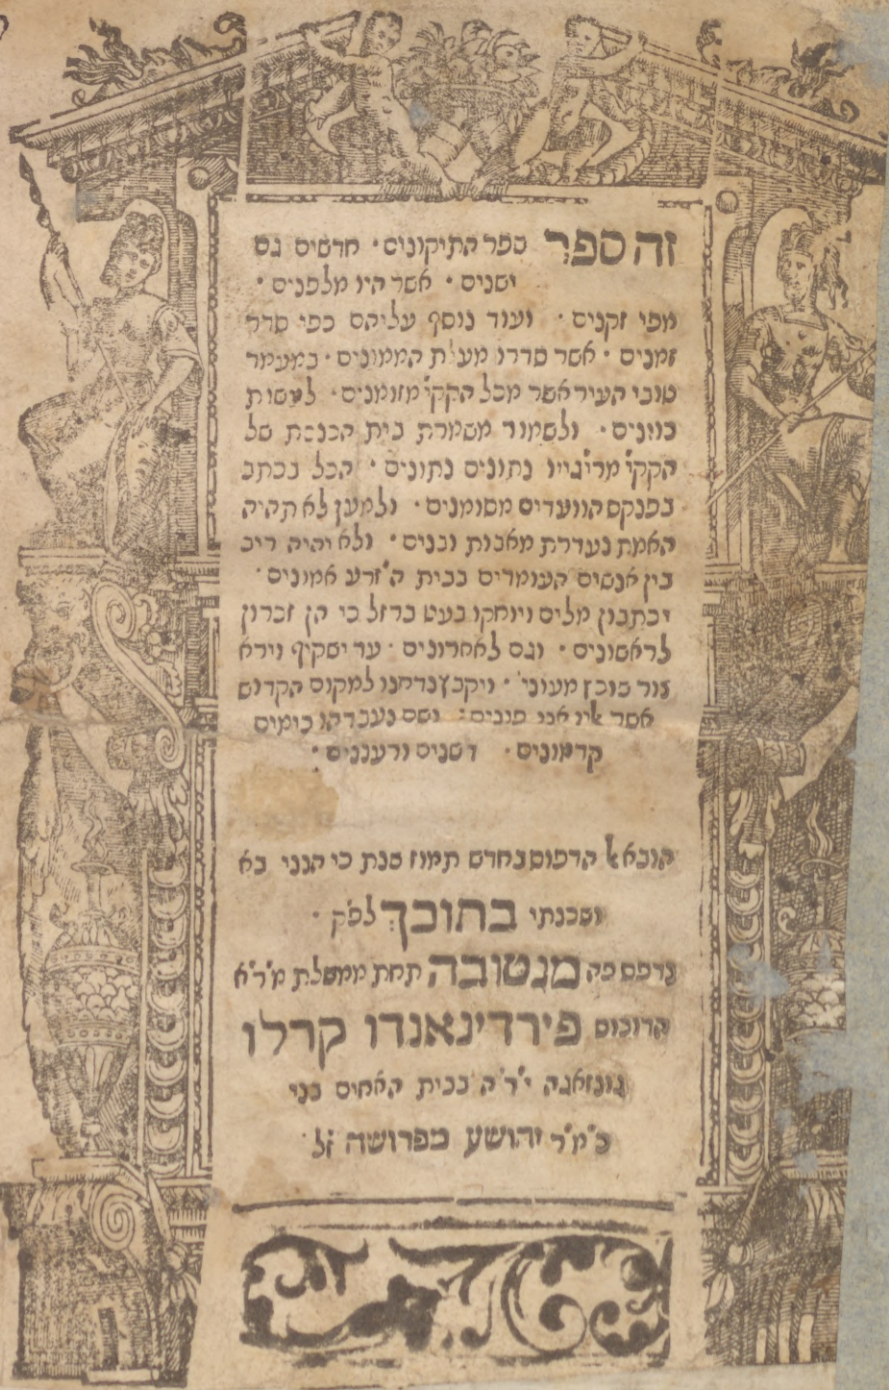 זה ספר ספר התיקונים · חדשים גם
ישנים · אשר היו מלפנים ·
מפי זקנים · ועוד נוסף עליהם כפי סדר
זמנים · אשר סדרו מעלת הממונים · במעמד
טובי העיר אשר מכל הקק״י מזומנים · לעשות
כוונים · ולשמור משמרת בית הכנסת של
הקק״י נתונים נתונים · הכל נכתב
בפנקס הוועדים מסומנים · ולמען לא תהיה
האמת נעדרת מאבות ובנים · ולא יהיה ריב
בין אנשים העומדים בבית ה׳ זרע אמונים ·
יכתבון מלים ויוחקו בעט ברזל כי הן זכרון
לראשונים · וגם לאחרונים · עד ישקיף וירא
צור שוכן מעוני׳ · ויקבץ נדחנו למקום הקדוש
אשר אליו אנו פונים · ושם נעבדהו כימים
קדמונים · דשנים ורעננים ·
הובא אל הדפוס בחדש תמוז שנת כי הנני בא
ושכנתי בתוכך לפ״ק ·
נדפס פה מנטובה תחת ממשלת מ׳ר׳א
הדוכוס פירדינאנדו קרלו
גונזאגה י׳ר׳ה בבית האחים בני
כ׳מ׳ר יהושע מפרושה ז״ל